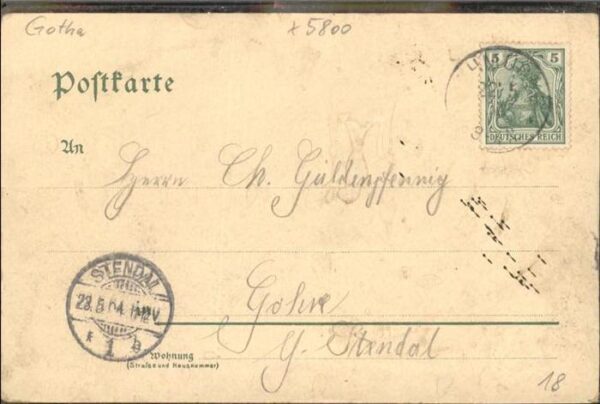 Gotha
x 5800
Postkarte
5 5
DEUTSCHES REICH
An
Herrn Ch. Güldenpfennig
STENDAL
23.5.04.
1 b
Gohre
b. Stendal
Wohnung
(Straße und Hausnummer)
18